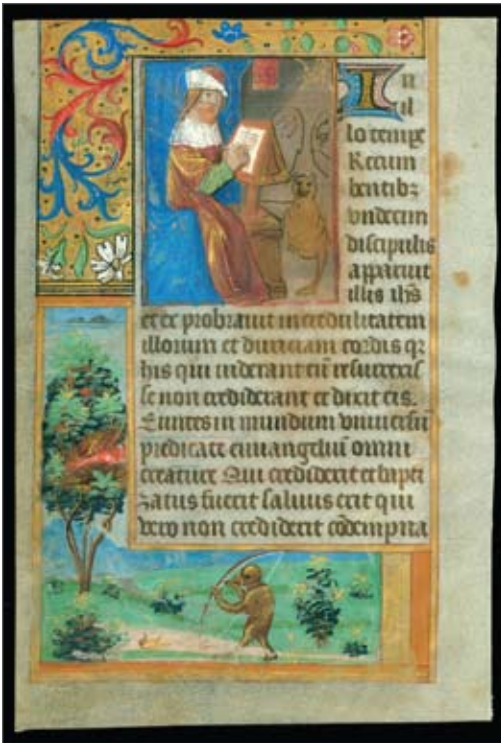 In
il
lo tempe
Recum
bentibz
vndecim
discipulis
apparuit
illis ihs
et ex probrauit incredulitatem
illorum et duriciam cordis qz
his qui uiderant eum resurrexis
se non crediderant et dixit eis.
Euntes in mundum vniuersū
predicate euuangeliū omni
creature Qui crediderit et bapti
zatus fuerit saluus erit qui
vero non crediderit cōdempna